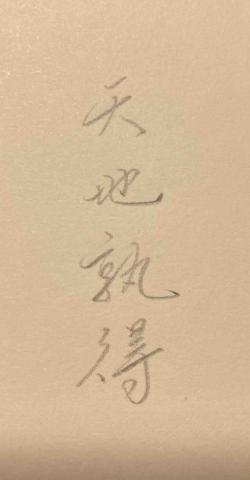 天地孰得